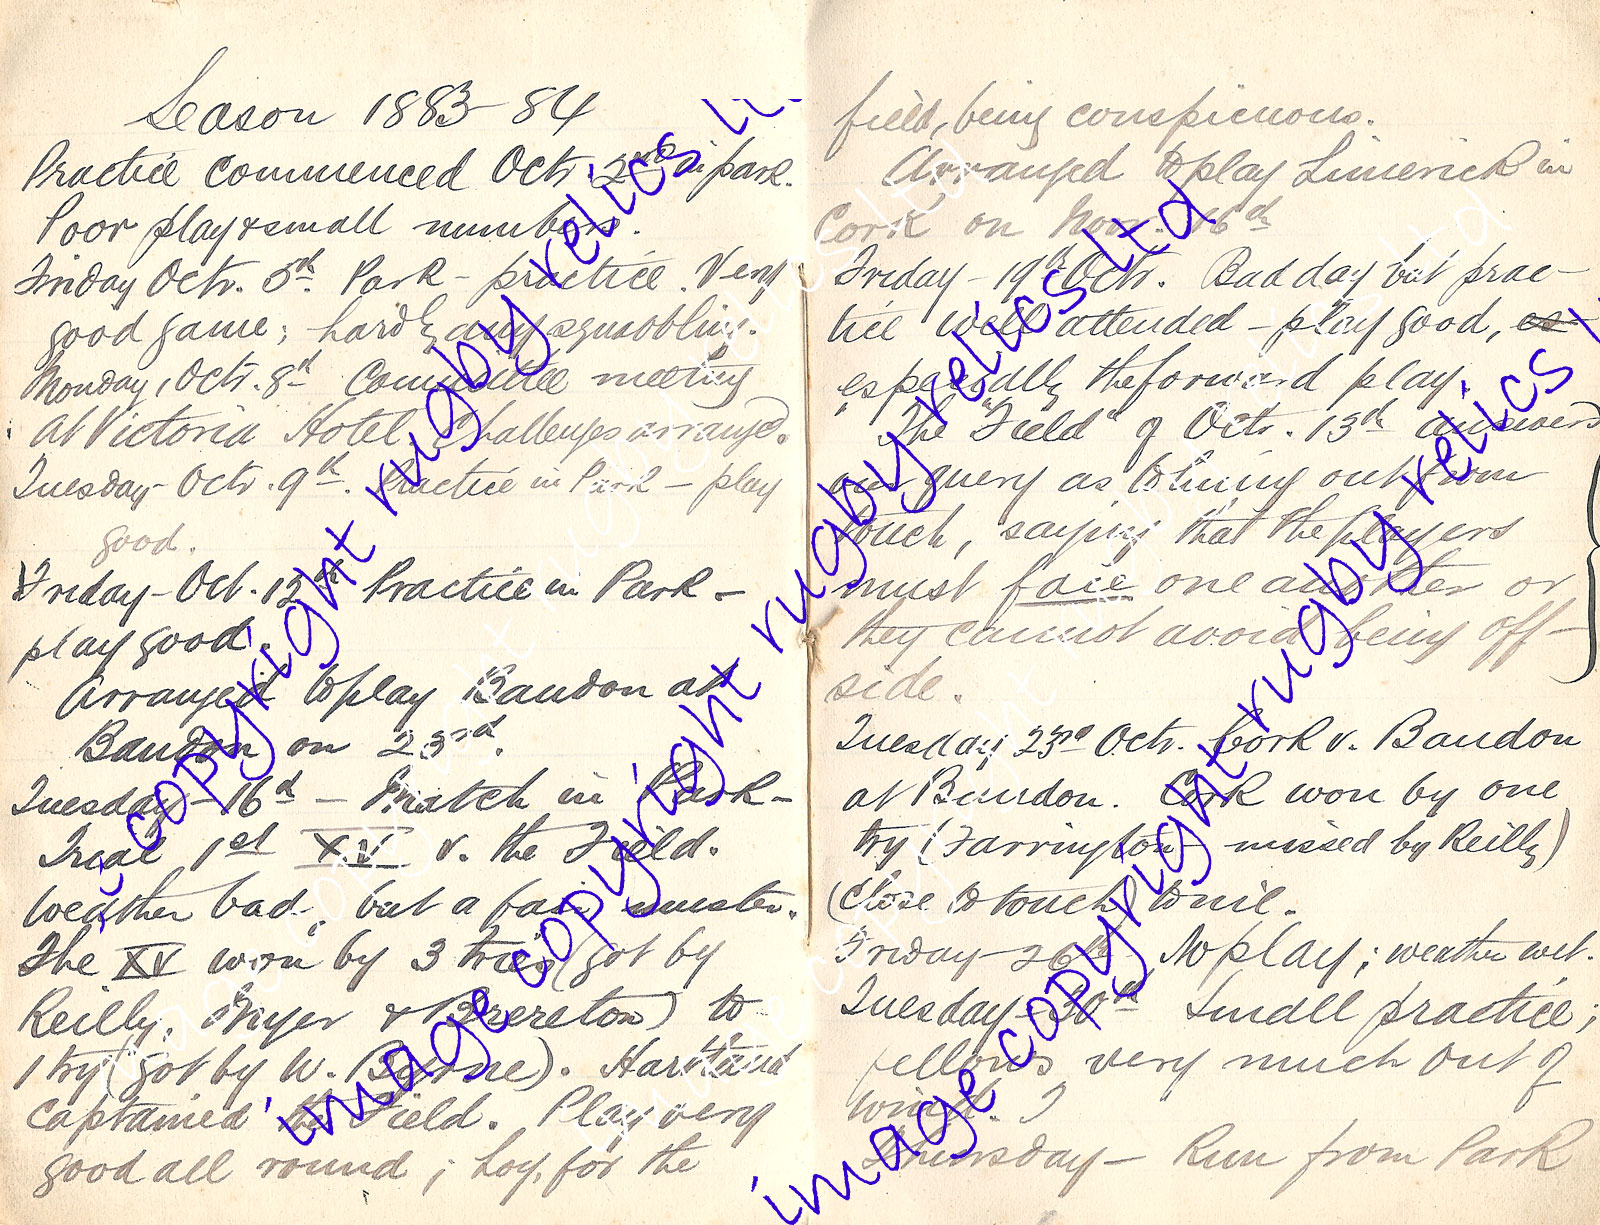 Season 1883-84
Practice commenced Octr. 2nd in park.
Poor play & small numbers.
Friday Octr. 5th. Park - practice. Very
good game; hardly any squabbling.
Monday, Octr. 8th Committee meeting
at Victoria Hotel. Challenges arranged.
Tuesday - Octr. 9th. Practice in Park - play
good.
Friday - Oct. 12th Practice in Park -
play good.
Arranged to play Bandon at
Bandon on 23rd.
Tuesday - 16th - Match in Park -
Trial 1st XV v. the Field.
Weather bad, but a fair muster.
The XV won by 3 tries (got by
Reilly, & Brereton) to
1 try (got by W. Byrne). Hartland
captained the Field. Play very
good all round; Loy, for the
field, being conspicuous.
Arranged to play Limerick in
Cork on Novr. 16th
Friday - 19th Octr. Bad day but prac-
tice well attended - play good, es-
especially the forward play.
The "Field" of Octr. 13th answers
our query as to lining out from
touch, saying that the players
must face one another or
they cannot avoid being off-
side.
Tuesday 23rd Octr. Cork v. Bandon
at Bandon. Cork won by one
try (Farrington - missed by Reilly)
(close to touch) to nil.
Friday - 26th - No play; weather wet.
Tuesday - 30th Small practice;
fellows very much out of
wind.
Thursday - Run from Park
image copyright rugby relics ltd
image copyright rugby relics ltd
image copyright rugby relics ltd